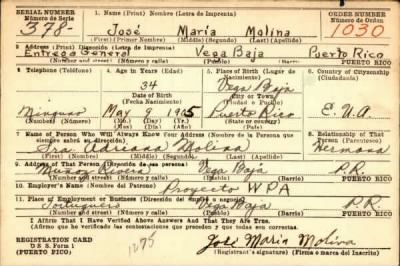 SERIAL NUMBER
Número de Serie
378
1. Name (Print) Nombre (Letra de Imprenta)
José María Molina
(First) (Primer Nombre) (Middle) (Segundo) (Last) (Apellido)
ORDER NUMBER
Número de Orden
1030
2. Address (Print) Dirección (Letra de Imprenta)
Entrega General Vega Baja Puerto Rico
(Number and street) (Número y calle) (Town) (Pueblo) PUERTO RICO
3. Telephone (Teléfono)
Ninguno
4. Age in Years (Edad)
34
Date of Birth
(Fecha Nacimiento)
May 9 1905
(Mo.) (Day) (Día) (Yr.) (Año)
5. Place of Birth (Lugar de Nacimiento)
Vega Baja
(City or Town)
(Ciudad o Pueblo)
Puerto Rico
(State or country)
6. Country of Citizenship
(Ciudadanía)
E.U.A
7. Name of Person Who Will Always Know Your Address (Nombre de la Persona que siempre sabrá su dirección)
Sra. Adriana Molina
(First) (Primer Nombre) (Middle) (Segundo) (Last) (Apellido)
8. Relationship of That Person (Parentesco)
Hermana
9. Address of That Person (Dirección de esa persona)
Muñoz Rivera Vega Baja P.R.
(Number and street) (Número y calle) (Town) (Pueblo) PUERTO RICO
10. Employer's Name (Nombre del Patrono)
Proyecto WPA
11. Place of Employment or Business (Dirección del empleo o negocio)
Tortuguero Vega Baja P.R
(Number and street) (Número y calle) (Town) (Pueblo) PUERTO RICO
I Affirm That I Have Verified Above Answers And That They Are True.
Afirmo que he verificado las contestaciones que preceden y que todas son correctas.
REGISTRATION CARD
D S S. Form 1
(PUERTO RICO)
José María Molina
Registrant's signature (Firma del inscrito)